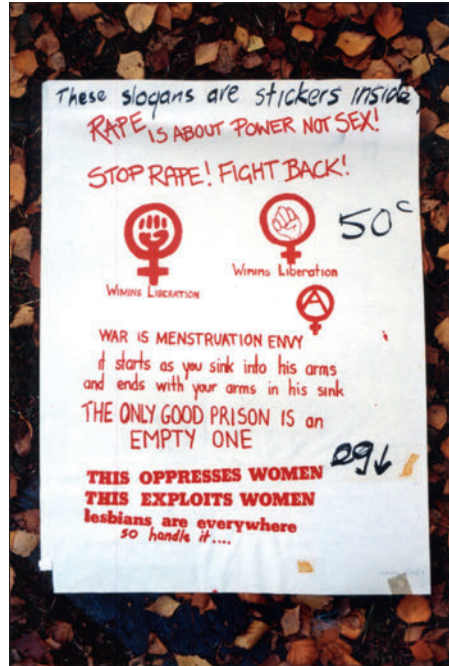 These slogans are stickers inside,
RAPE IS ABOUT POWER NOT SEX!
STOP RAPE! FIGHT BACK!
50c
WIMINS LIBERATION
Wimins Liberation
A
WAR IS MENSTRUATION ENVY
it starts as you sink into his arms
and ends with your arms in his sink
THE ONLY GOOD PRISON IS an
EMPTY ONE
eg↓
THIS OPPRESSES WOMEN
THIS EXPLOITS WOMEN
lesbians are everywhere
so handle it....